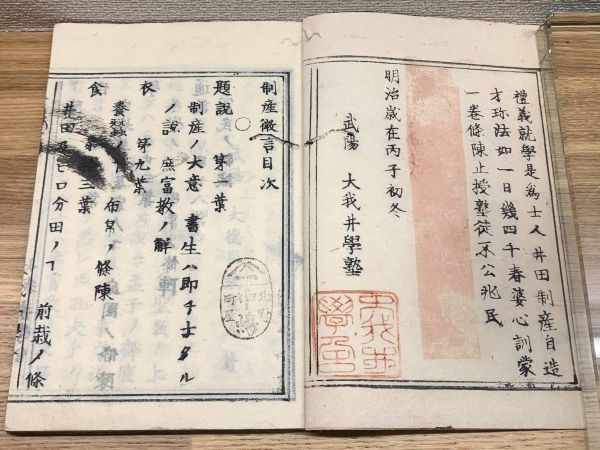 禮義就學是為士人井田制産自造
才珎法如一日幾四千春婆心訓蒙
一卷條陳止授塾徒不公兆民
明治歳在丙子初冬
武陽 大我井學塾
制産微言目次
題説 第一葉
制産ノ大意 書生ハ即チ士タル
ノ説 庶富教ノ解
衣 第九葉
布帛ノ條陳
食 三葉
井田及ヒ口分田ノ
前栽ノ條